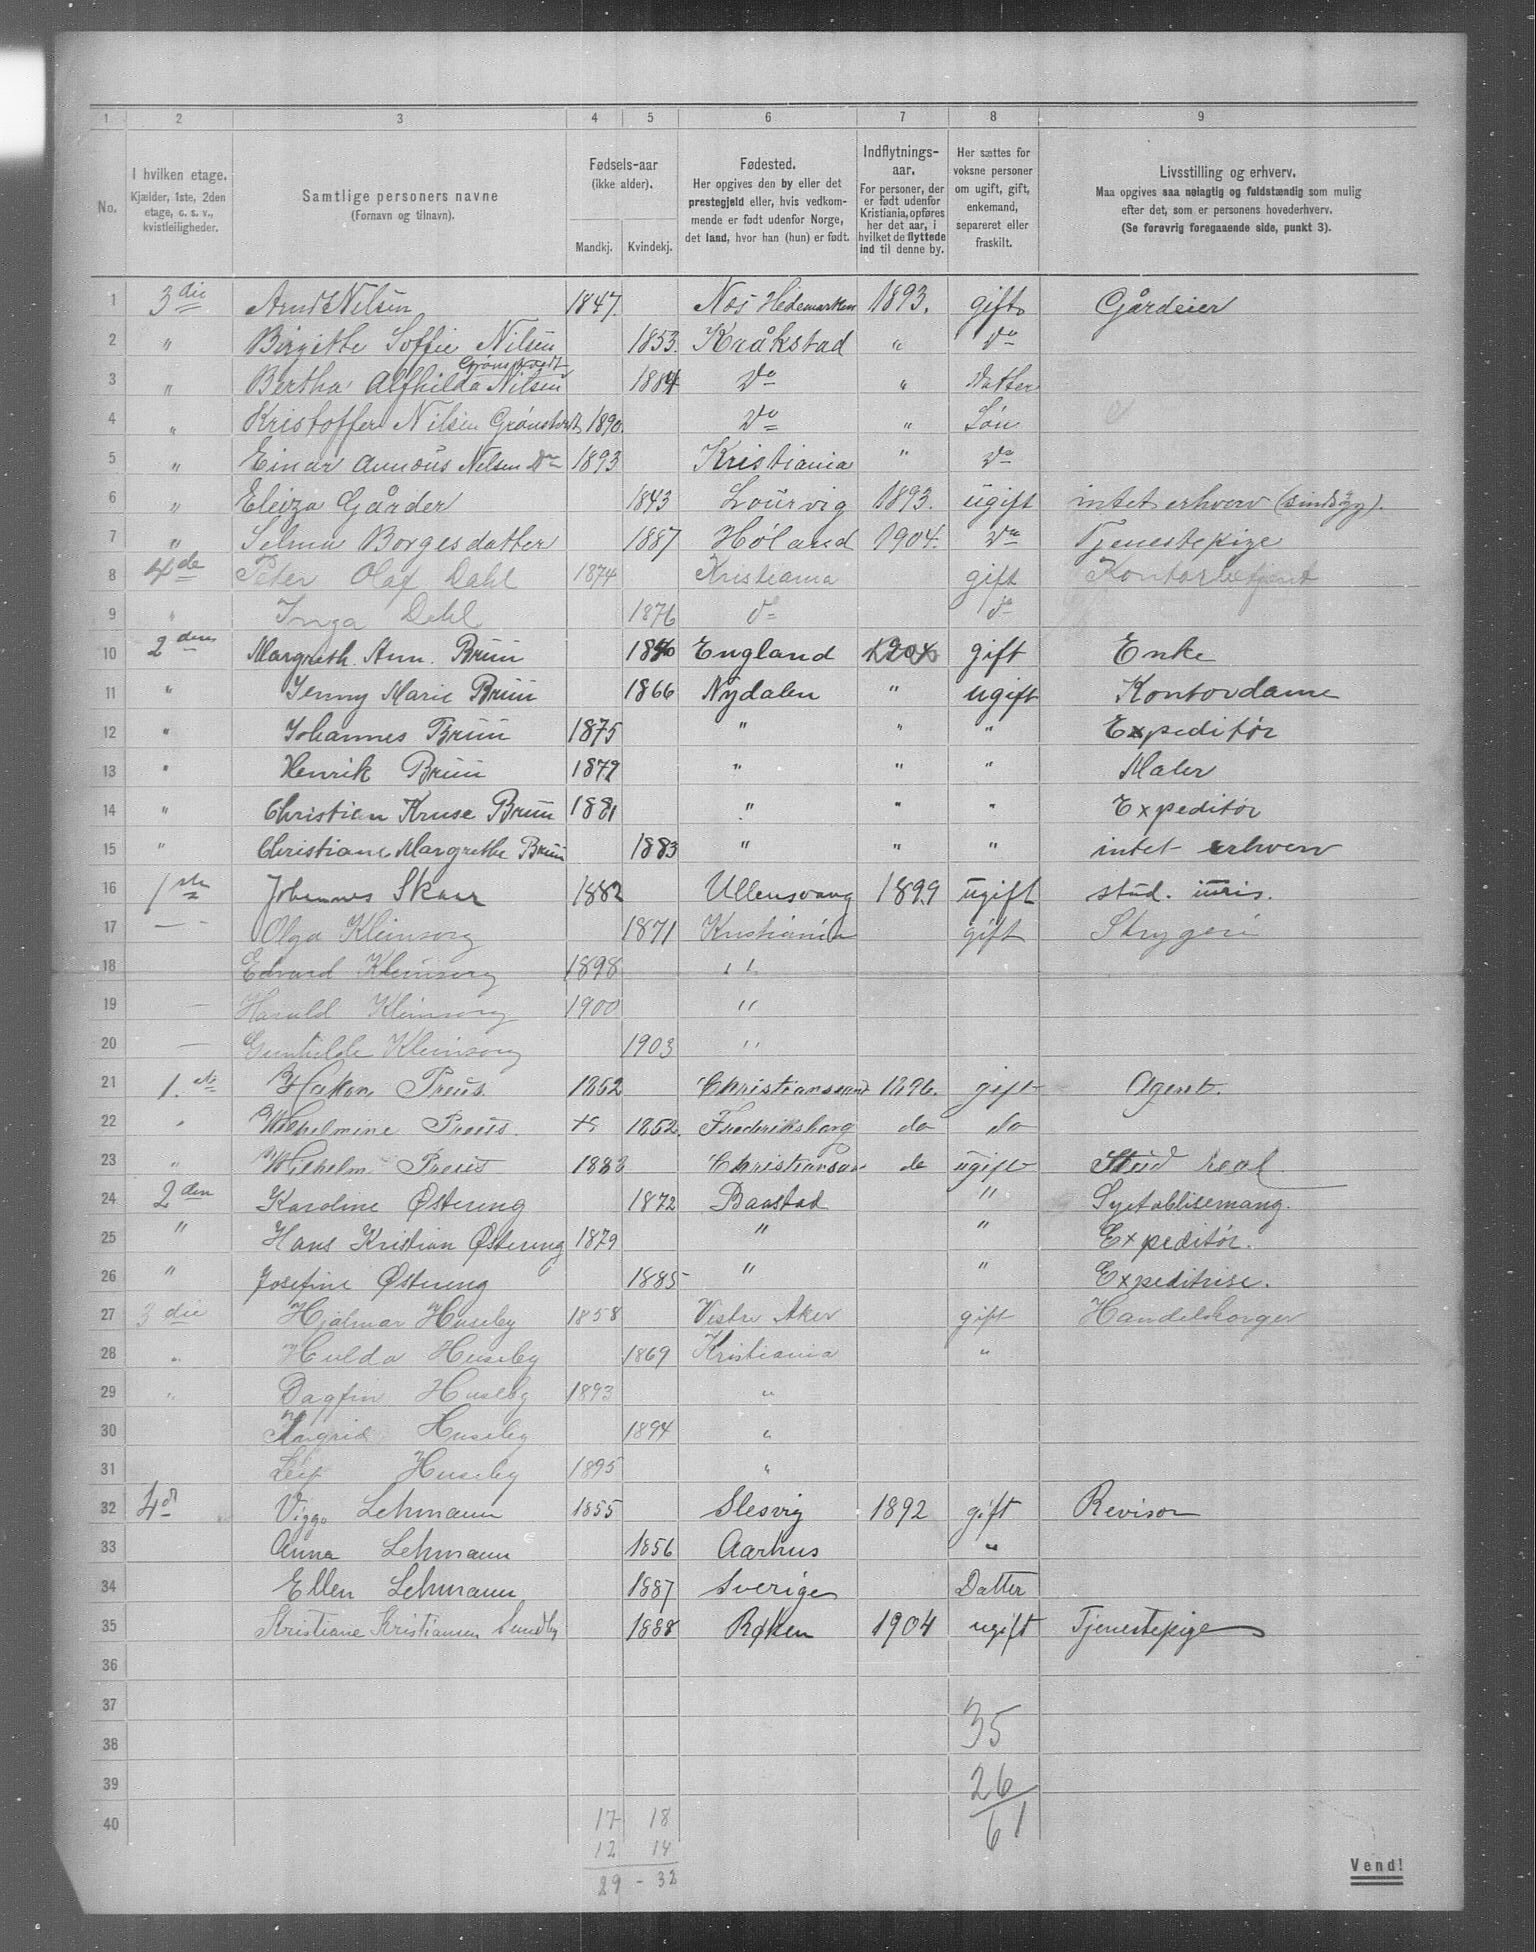 1 2 3 4 5 6 7 8 9
No. | I hvilken etage. Kjælder, 1ste, 2den etage, o. s. v., kvistleiligheder. | Samtlige personers navne (Fornavn og tilnavn). | Fødsels-aar (ikke alder). Mandkj. Kvindekj. | Fødested. Her opgives den by eller det prestegjeld eller, hvis vedkommende er født udenfor Norge, det land, hvor han (hun) er født. | Indflytnings-aar. For personer, der er født udenfor Kristiania, opføres her det aar, i hvilket de flyttede ind til denne by. | Her sættes for voksne personer om ugift, gift, enkemand, separeret eller fraskilt. | Livsstilling og erhverv. Maa opgives saa nøiagtig og fuldstændig som mulig efter det, som er personens hovederhverv. (Se forøvrig foregaaende side, punkt 3).
1 3die Arndt Nilsen 1847. Nes Hedemarken 1893. gift Gårdeier
2 " Birgitte Soffie Nilsen 1853. Kråkstad " do
3 " Bertha Alfhilda Nilsen 1884 do " Datter
4 " Kristoffer Nilsen Grønstvedt 1890. do " Søn
5 " Einar Nilsen do 1893 Kristiania " do
6 " Eleiza Gårder 1843 Lourvig 1893. ugift intet erhverv (sindsyg).
7 " Selma Borgesdatter 1887 Høland 1904. do Tjenestepige
8 4de Peter Olaf Dahl 1874 Kristiania gift Kontorbetjent
9 " Inga Dahl 1876 do do
10 2den Margreth. Ann. Bruu England gift Enke
11 " Jenny Marie Bruu 1866 Nydalen " ugift Kontordame
12 " Johannes Bruu 1875 " " " Expeditør
13 " Henrik Bruu 1879 " " " Maler
14 " Christian Kruse Bruu 1881 " " " Expeditør
15 " Christiane Margrethe Bruu 1883 " " " intet erhverv
16 1ste Johannes Skaar 1882 Ullensvang 1899 ugift stud. iuris.
17 — Olga Kleinsorg 1871 Kristiania gift Strygeri
18 Edvard Kleinsorg 1898 "
19 — Harald Kleinsorg 1900 "
20 — Gunhilde Kleinsorg 1903 "
21 1.ste Hakon Preus. 1852 Christianssand 1896. gift Agent.
22 " Wilhelmine Preus. 1852. Frederiksborg do do
23 " Wilhelm Preus 1883 Christianssan do ugift Stud real
24 2den Karoline Østereng 1872 Baastad " Syetablisemang.
25 " Hans Kristian Østereng 1879 " " Expeditør.
26 " Josefine Østereng 1885 " " Expeditrise.
27 3die Hjalmar Huseby 1858 Vestre Aker gift Handelsborger
28 " Hulda Huseby 1869 Kristiania "
29 " Dagfin Huseby 1893 "
30 Huseby 1894 "
31 Leif Huseby 1895 "
32 4d Viggo Lehmann 1855 Slesvig 1892 gift Revisor
33 Anna Lehmann 1856 Aarhus "
34 Ellen Lehmann 1887 Sverige Datter
35 Kristiane Kristiansen Sundby 1888 Røken 1904 ugift Tjenestepige
36
37 35
38
39 26
40 17 18 61
12 14
29 - 32
Vend!